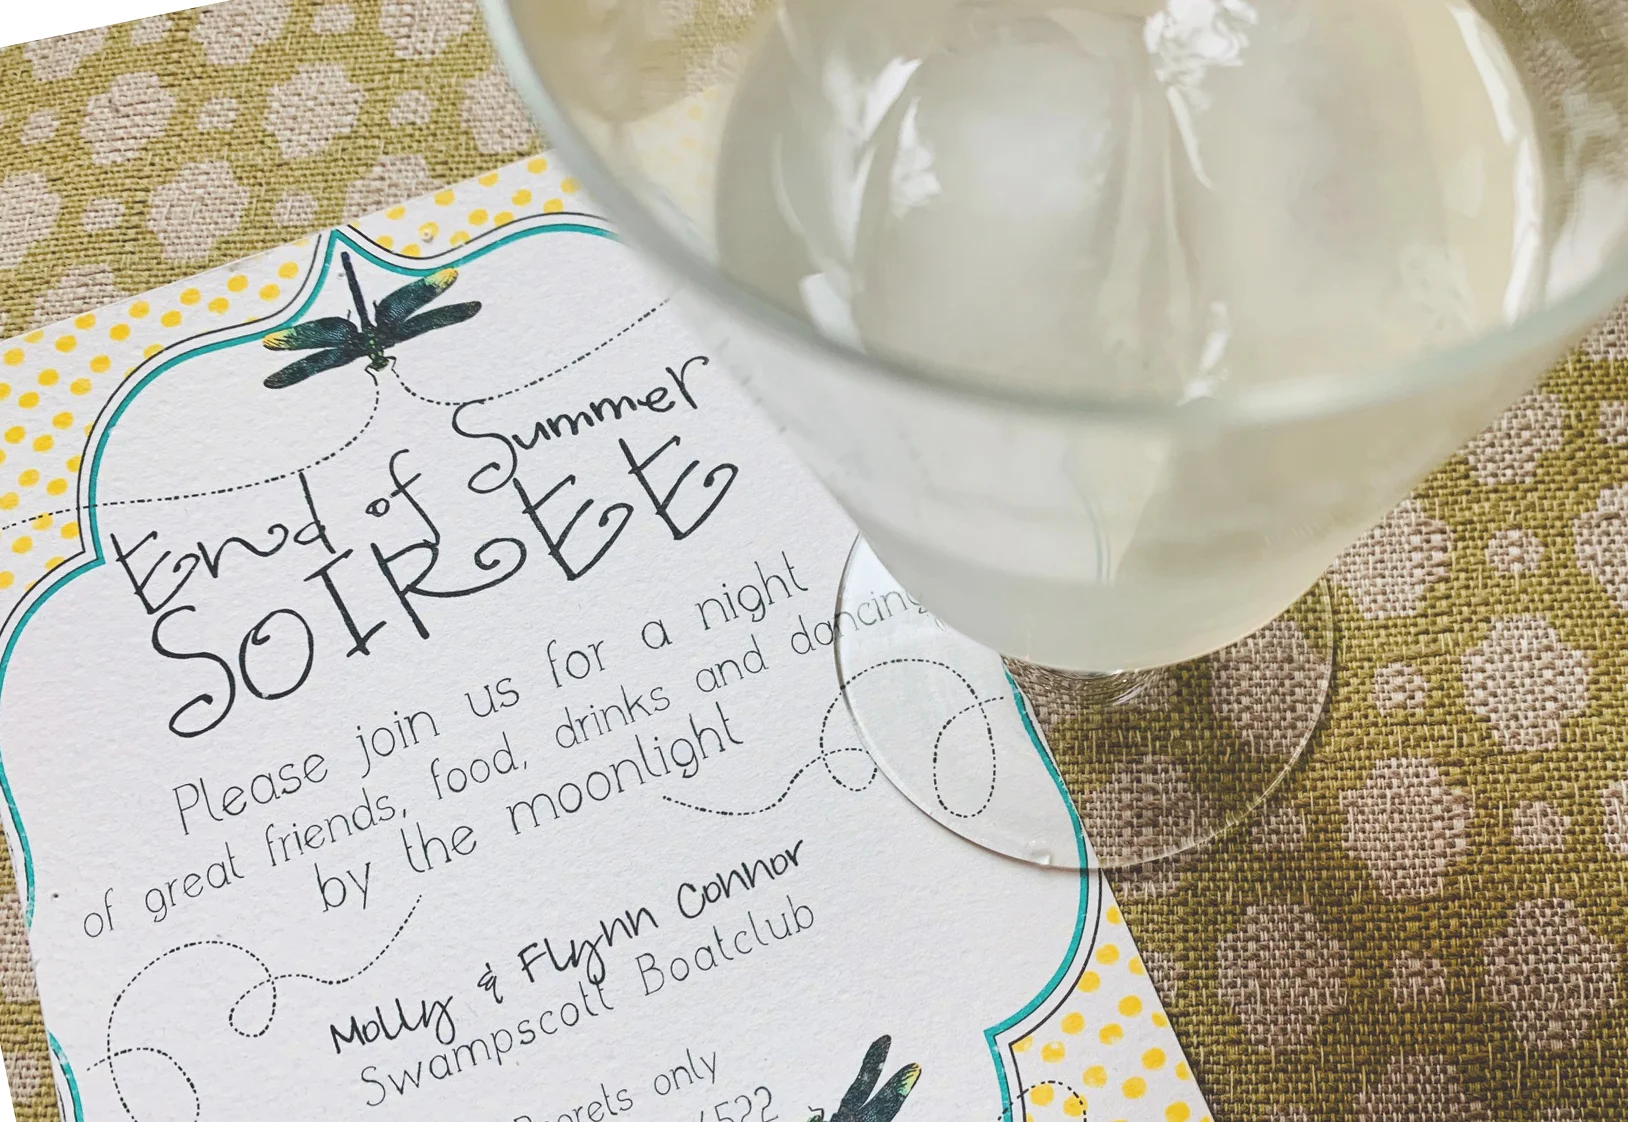 End of Summer
SOIREE
Please join us for a night
of great friends, food, drinks and dancing
by the moonlight
Molly & Flynn Connor
Swampscott Boatclub
Regrets only